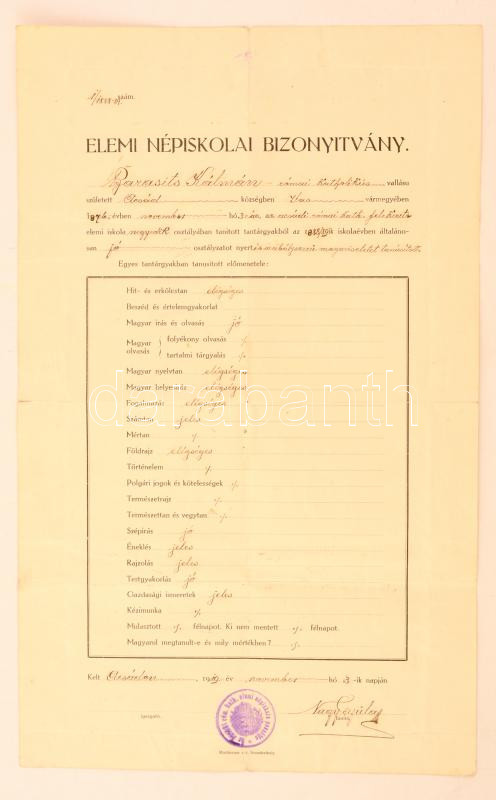 szám.
ELEMI NÉPISKOLAI BIZONYITVÁNY.
Barasits Kálmán római katholikus vallásu
született Acsád községben Vas vármegyében
1876. évben november hó 3-án, az acsádi római kath. felekezeti
elemi iskola negyedik osztályában tanitott tantárgyakból az iskolaévben általáno-
san jó osztályzatot nyert és magaviseletet tanúsított.
Egyes tantárgyakban tanusított előmenetele:
Hit- és erkölcstan elégséges
Beszéd és értelemgyakorlat
Magyar irás és olvasás jó
Magyar olvasás folyékony olvasás %
tartalmi tárgyalás %
Magyar nyelvtan elégséges
Magyar helyesirás elégséges
Fogalmazás elégséges
Számtan jeles
Mértan %
Földrajz elégséges
Történelem %
Polgári jogok és kötelességek %
Természetrajz %
Természettan és vegytan %
Szépirás jó
Éneklés jeles
Rajzolás jeles
Testgyakorlás jó
Gazdasági ismeretek jeles
Kézimunka %
Mulasztott %. félnapot. Ki nem mentett %. félnapot.
Magyarul megtanult-e és mily mértékben? %
Kelt Acsádon 1919 év november hó 3-ik napján
igazgató.
tanító.
darabanth